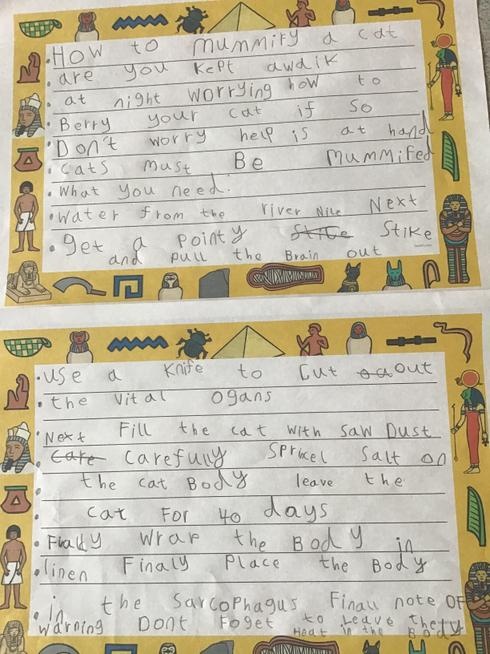 HOW to mummify a cat
are you kept awaik
at night worrying how to
Berry your cat if so
Don't worry help is at hand
cats must Be Mummifed
what you need:
water from the river Nile Next
get a pointy Stike Stike
and pull the Brain out
use a knife to cut out
the vital ogans
Next Fill the cat with saw Dust
Care carefully Sprincel Salt on
the cat Body leave the
cat For 40 days
Finally wrap the Body in
linen Finaly Place the Body
in the Sarcophagus Finall note OF
warning Dont Foget to leave the
Heat in the Body